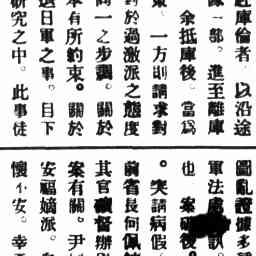 赴庫倫者。以沿途
隊一部。進至離庫
余抵庫後。當爲
東。一方則請求對
對於過激派之態度
同一之步調。關於
本有所約束。關於
退日軍之事。目下
研究之中。此事徒
圖亂證據多
軍法處訊。
也 案破後。
。突請病假
前省長何佩
其官礦督辦
案有關。尹
安福嫡派。
懷不安。幸